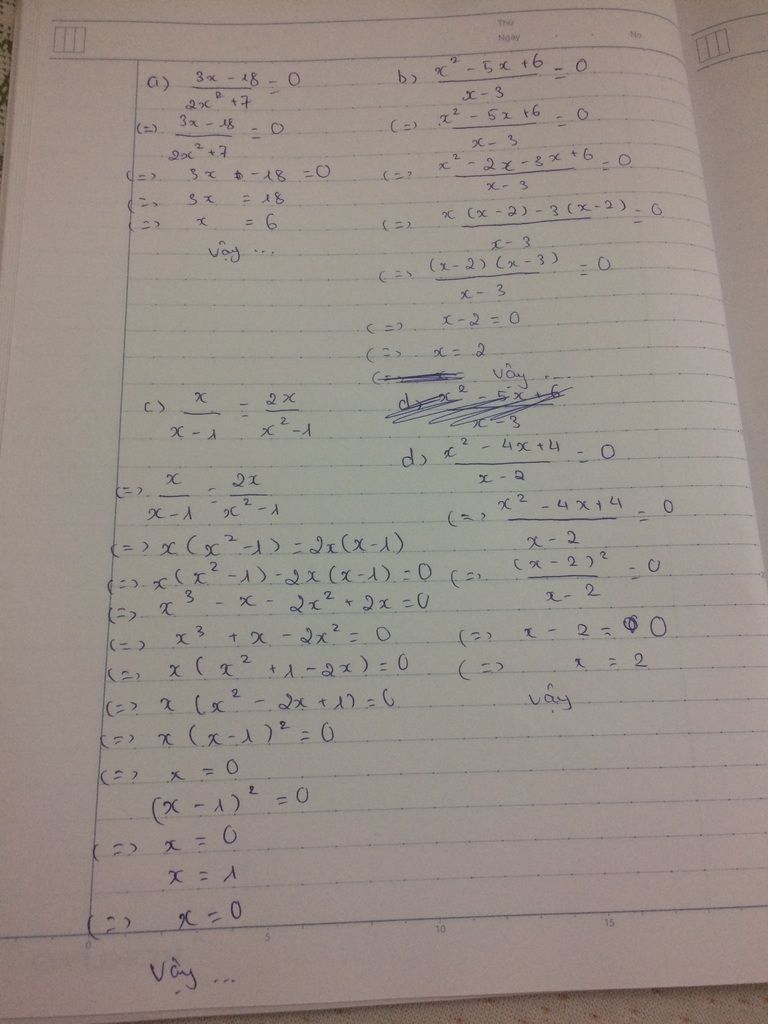 Thứ
Ngày No.
a) (3x - 18)/(2x² + 7) = 0
(=) (3x - 18)/(2x² + 7) = 0
(=) 3x - 18 = 0
(=) 3x = 18
(=) x = 6
Vậy ...
b) (x² - 5x + 6)/(x - 3) = 0
(=) (x² - 5x + 6)/(x - 3) = 0
(=) (x² - 2x - 3x + 6)/(x - 3) = 0
(=) (x(x - 2) - 3(x - 2))/(x - 3) = 0
(=) ((x - 2)(x - 3))/(x - 3) = 0
(=) x - 2 = 0
(=) x = 2
Vậy ...
c) x/(x - 1) = 2x/(x² - 1)
(=) x/(x - 1) = 2x/(x² - 1)
(=) x(x² - 1) = 2x(x - 1)
(=) x(x² - 1) - 2x(x - 1) = 0
(=) x³ - x - 2x² + 2x = 0
(=) x³ + x - 2x² = 0
(=) x(x² + 1 - 2x) = 0
(=) x(x² - 2x + 1) = 0
(=) x(x - 1)² = 0
(=) x = 0
(x - 1)² = 0
(=) x = 0
x = 1
(=) x = 0
Vậy ...
d) (x² - 5x + 6)/(x - 3)
d) (x² - 4x + 4)/(x - 2) = 0
(=) (x² - 4x + 4)/(x - 2) = 0
(=) (x - 2)²/(x - 2) = 0
(=) x - 2 = 0
(=) x = 2
Vậy
0 5 10 15